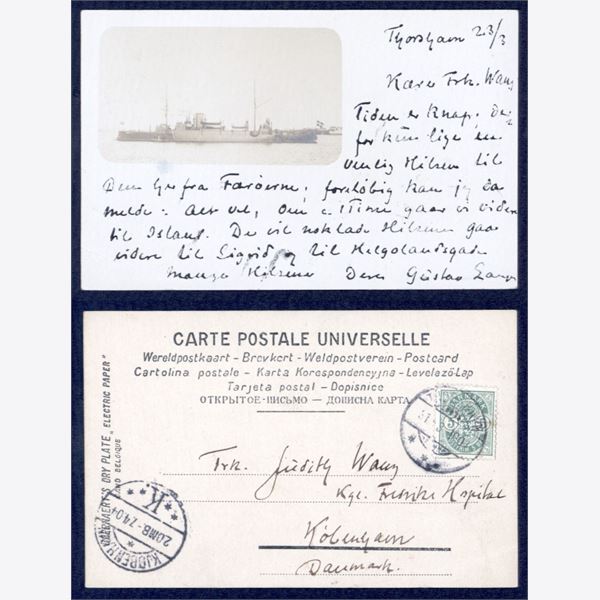 Thorshavn 23/3
Kære Frk. Wang
Tiden er knap, der-
for kun lige en
venlig Hilsen til
Dem her fra Færøerne; foreløbig kan jeg da
melde: alt vel, om Time gaar vi videre
til Island. De vil nok lade Hilsenen gaa
videre til Sigrid og til Helgolandsgade
Mange Hilsener Deres Gustav
CARTE POSTALE UNIVERSELLE
Wereldpostkaart – Brevkort – Weldpostverein – Postcard
Cartolina postale – Karta Korespondencyjna – Levelező-Lap
Tarjeta postal – Dopisnice
ОТКРЫТОЕ-ПИСЬМО — ДОПИСНА КАРТА
DRY PLATE „ELECTRIC PAPER"
BELGIQUE
Frk. Judith Wang
Kgl. Fredriks Hospital
København
Danmark.
K
20MB-7.4.04
KJØBENH